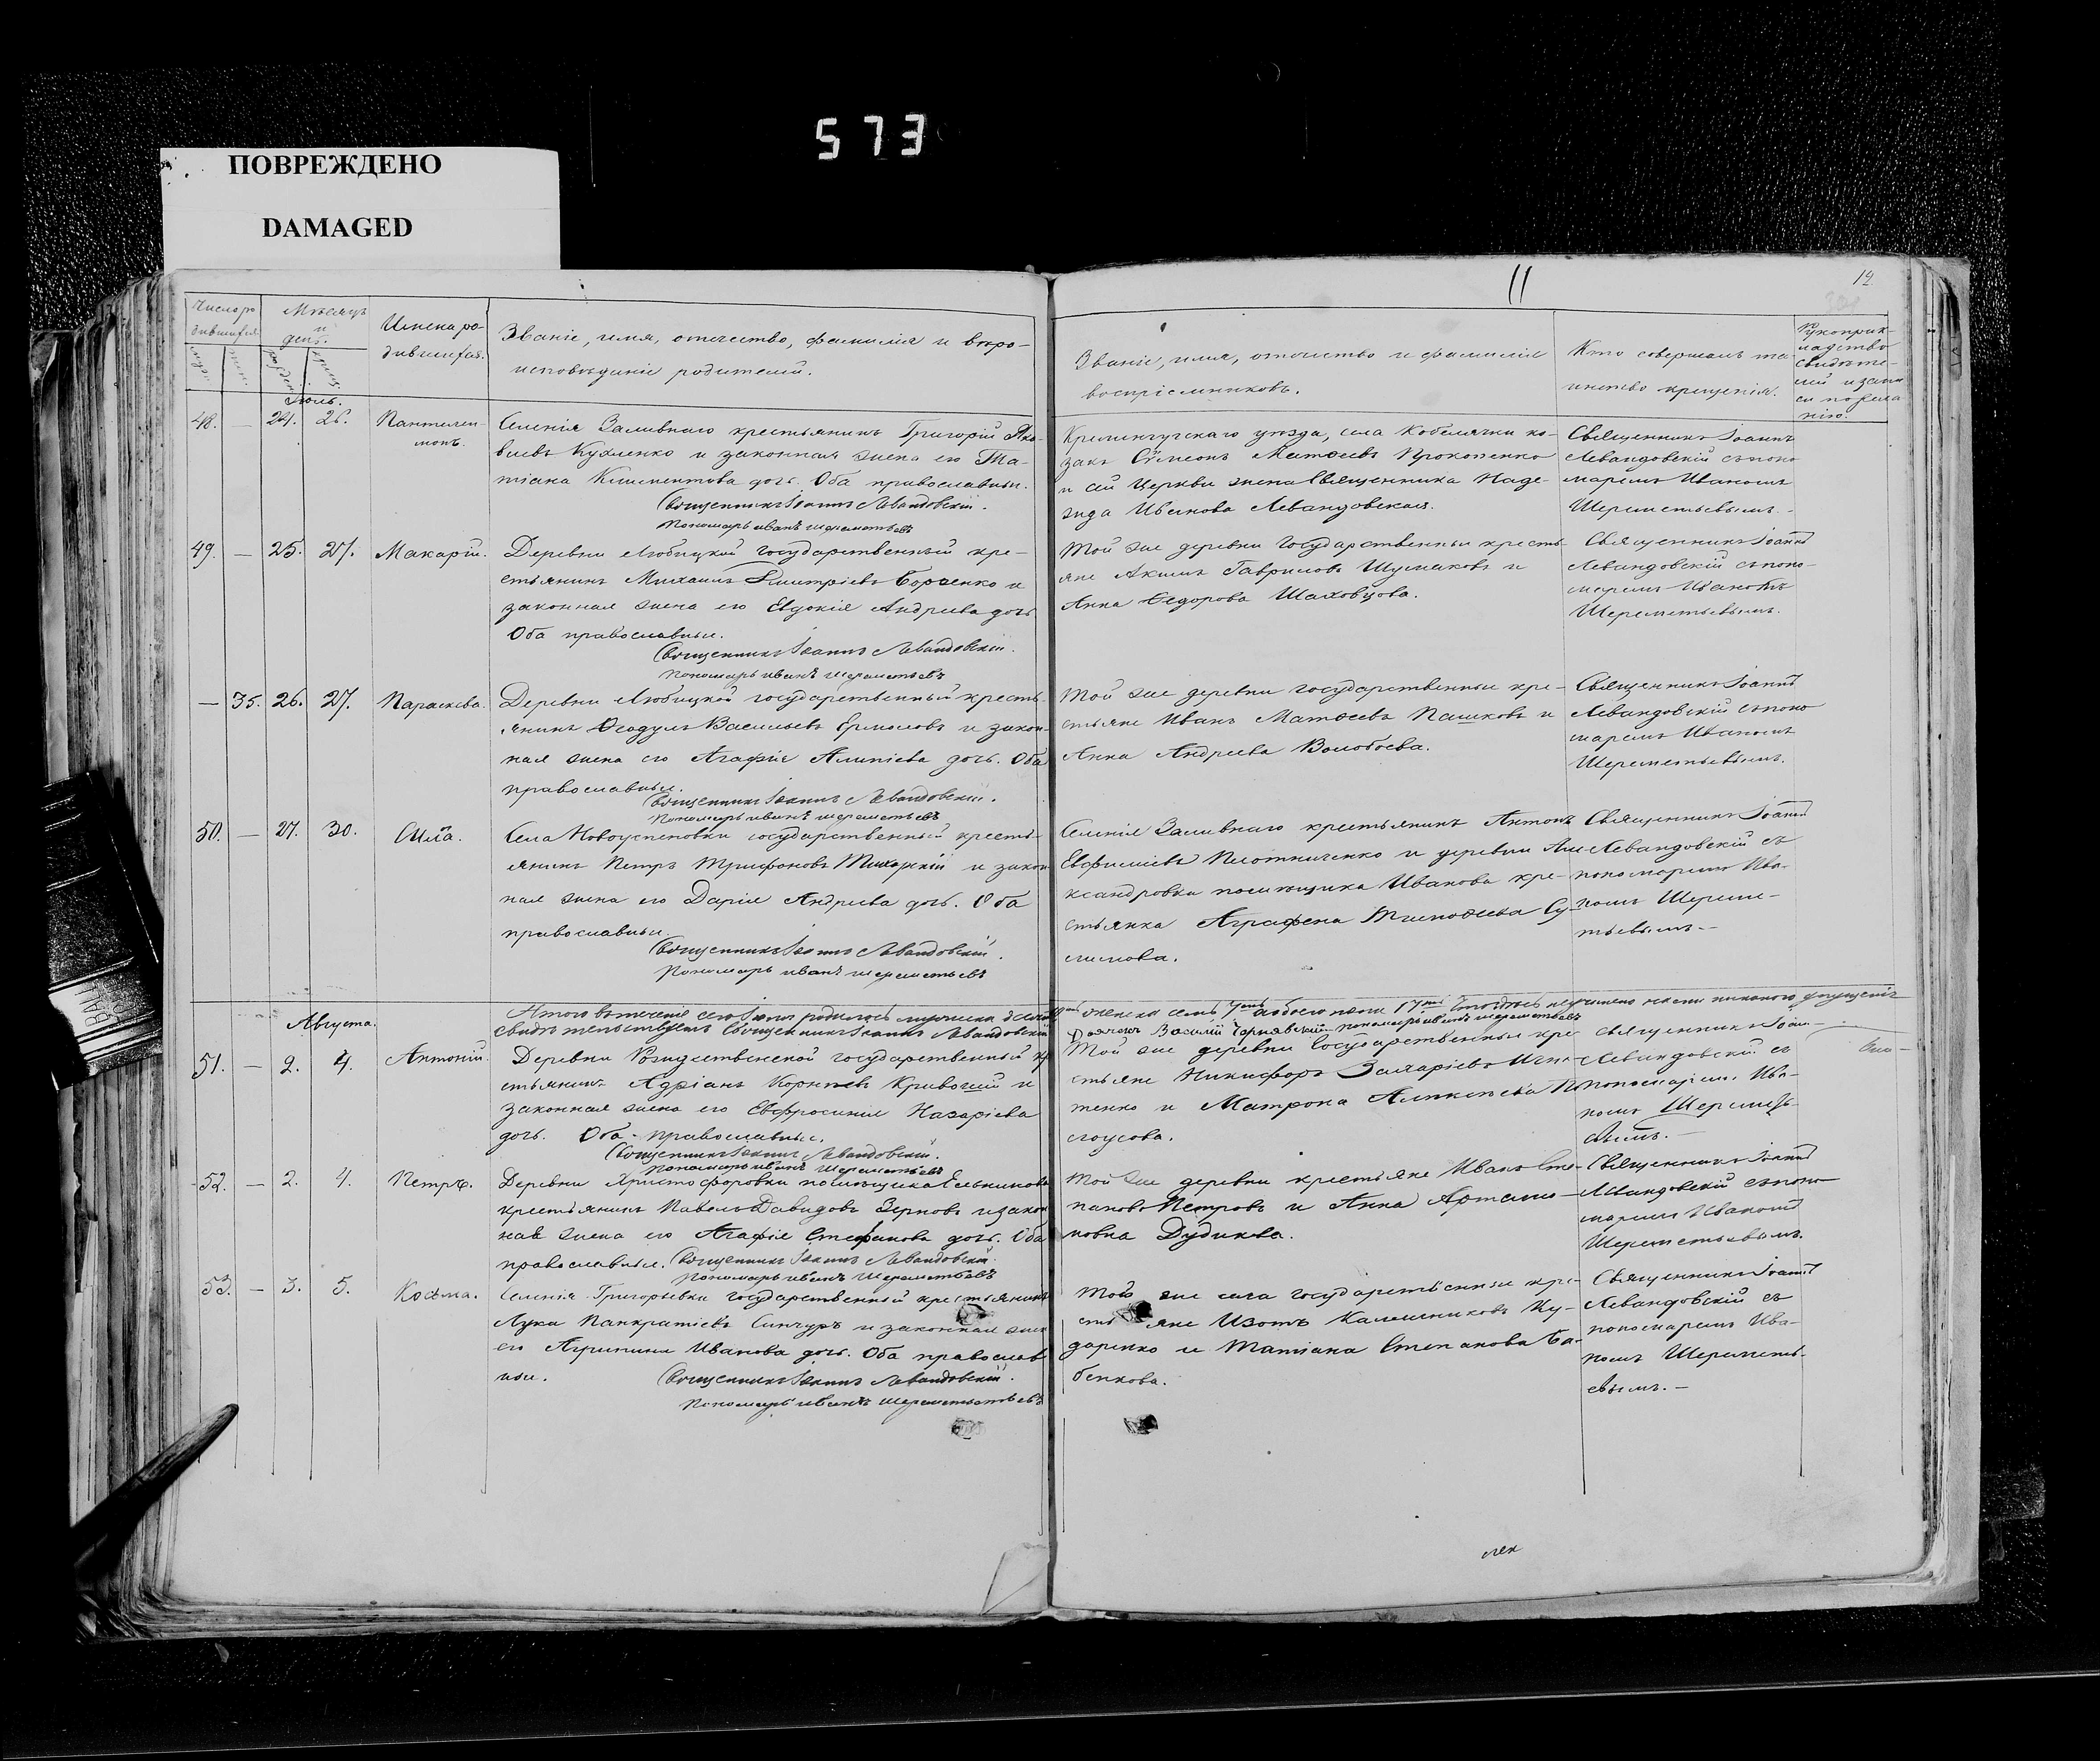 573
ПОВРЕЖДЕНО
DAMAGED
11
12
Число ро-
дившихся
Мѣсяцъ
и
день.
Имена ро-
дившихся.
Званіе, имя, отчество, фамилія и вѣро-
исповѣданіе родителей.
Званіе, имя, отчество и фамилія
воспріемниковъ.
Кто совершалъ та-
инство крещенія.
Рукоприк-
ладство
свидѣте-
лей
Іюль.
48. — 24. 26. Пантелей-
монъ.
Селенія Заливнаго крестьянинъ Григорій Яко-
влевъ Кухленко и законная жена его Та-
тіана Климентова дочь. Оба православные.
Священникъ Іоаннъ Левандовскій.
Пономарь иванъ шереметьевъ
Кременчугскаго уѣзда, села Кобелячки ко-
закъ Сѵмеонъ Матѳеевъ Прокопенко
и сей Церкви жена Священника Наде-
жда Иванова Левандовская.
Священникъ Іоаннъ
Левандовскій съ поно-
маремъ Иваномъ
Шереметьевымъ.
49. — 25. 27. Макарій.
Деревни Любицкой государственный кре-
стьянинъ Михаилъ Димитріевъ Борченко и
законная жена его Евдокія Андреева дочь
Оба православные.
Священникъ Іоаннъ Левандовскій.
Пономарь иванъ шереметьевъ
Той же деревни государственные кресть-
яне Акимъ Гавриловъ Шумаковъ и
Анна Ѳедорова Шаховцова.
Священникъ Іоаннъ
Левандовскій съ поно-
маремъ Иваномъ
Шереметьевымъ.
— 35. 26. 27. Параскева.
Деревни Любицкой государственный кресть-
янинъ Ѳеодулъ Васильевъ Ермоловъ и закон-
ная жена его Агафія Алипіева дочь. Оба
православные.
Священникъ Іоаннъ Левандовскій.
Пономарь иванъ шереметьевъ
Той же деревни государственные кре-
стьяне Иванъ Матѳеевъ Пашковъ и
Анна Андреева Волобоева.
Священникъ Іоаннъ
Левандовскій съ поно-
маремъ Иваномъ
Шереметьевымъ.
50. — 27. 30. Сила.
Села Новоуспеновки государственный кресть-
янинъ Петръ Трифоновъ и закон-
ная жена его Дарія Андреева дочь. Оба
православные.
Священникъ Іоаннъ Левандовскій.
Пономарь иванъ шереметьевъ
Селенія Заливнаго крестьянинъ Антонъ
Евфиміевъ Плотниченко и деревни Але-
ксандровки помѣщика Иванова кре-
стьянка Аграфена Тимоѳеева Су-
лимова.
Священникъ Іоаннъ
Левандовскій съ
пономаремъ Ива-
номъ Шереме-
тьевымъ.—
Итого въ теченіе сего Іюля родилось мужеска
женска семь обоего пола
свидѣтельствуемъ Священникъ Іоаннъ Левандовскій
Дьячекъ Василій Чернявскій пономарь иванъ шереметьевъ
Августа.
51. — 2. 4. Антоній.
Деревни Рождественской государственный кре-
стьянинъ Адріанъ Корнѣевъ и
законная жена его Евфросинія Назаріева
дочь. Оба православные.
Священникъ Іоаннъ Левандовскій.
Пономарь иванъ шереметьевъ
Той же деревни Государственные кре-
стьяне Никифоръ Захаріевъ Игна-
тенко и Матрона
Священникъ Іоан-
Левандовскій съ
пономаремъ Ива-
номъ Шереметь-
евымъ.—
52. — 2. 4. Петръ.
Деревни Христофоровки помѣщика
крестьянинъ Павелъ Давидовъ Зерновъ и закон-
ная жена его Агафія Стефанова дочь. Оба
православные. Священникъ Іоаннъ Левандовскій
Пономарь иванъ шереметьевъ
Той же деревни крестьяне Иванъ Сте-
пановъ Петровъ и Анна Артамо-
новна Дудикова.
Священникъ Іоаннъ
Левандовскій съ поно-
маремъ Иваномъ
Шереметьевымъ.
53. — 3. 5. Косма.
Селенія Григорьевки государственный крестьянинъ
Лука Панкратіевъ и законная жена
его Агрипина Иванова дочь. Оба православ-
ные.
Священникъ Іоаннъ Левандовскій.
Пономарь иванъ шереметьевъ
Той же села государственные кре-
стьяне Изотъ Ку-
даренко и Татіана Степанова Ба-
бенкова.
Священникъ Іоаннъ
Левандовскій съ
пономаремъ Ива-
номъ Шереметь-
евымъ.—